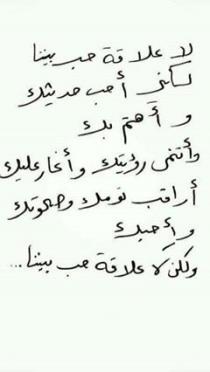 لا علاقة حب بيننا
لكني أحب حديثك
و أهتم بك
وأتمنى رؤيتك وأغار عليك
أراقب نومك وصحوتك
وأحبك
ولكن لا علاقة حب بيننا...